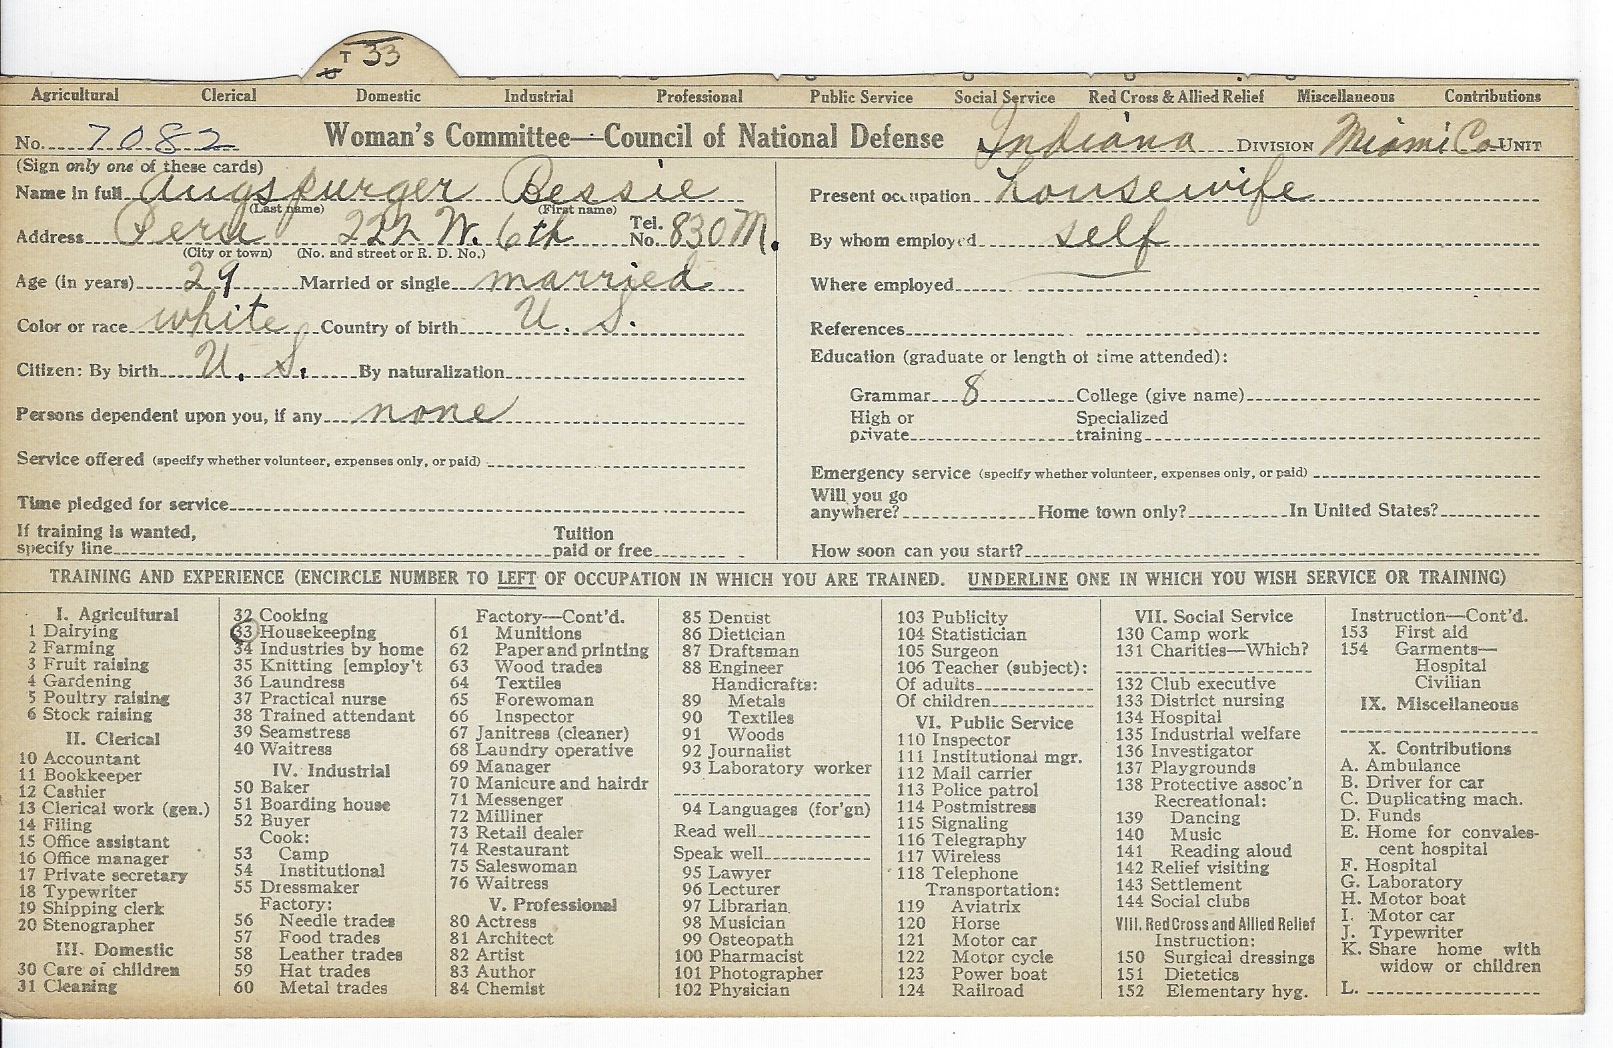 T 33
Agricultural Clerical Domestic Industrial Professional Public Service Social Service Red Cross & Allied Relief Miscellaneous Contributions
No. 7082 Woman's Committee—Council of National Defense Indiana DIVISION Miami Co. UNIT
(Sign only one of these cards)
Name in full Augspurger Bessie
(Last name) (First name)
Address Peru 222 W. 6th Tel. No. 830 M.
(City or town) (No. and street or R. D. No.)
Age (in years) 29 Married or single married
Color or race white Country of birth U. S.
Citizen: By birth U. S. By naturalization
Persons dependent upon you, if any none
Service offered (specify whether volunteer, expenses only, or paid)
Time pledged for service
If training is wanted,
specify line
Tuition
paid or free
Present occupation housewife
By whom employed self
Where employed
References
Education (graduate or length of time attended):
Grammar 8 College (give name)
High or
private
Specialized
training
Emergency service (specify whether volunteer, expenses only, or paid)
Will you go
anywhere? Home town only? In United States?
How soon can you start?
TRAINING AND EXPERIENCE (ENCIRCLE NUMBER TO LEFT OF OCCUPATION IN WHICH YOU ARE TRAINED. UNDERLINE ONE IN WHICH YOU WISH SERVICE OR TRAINING)
I. Agricultural
1 Dairying
2 Farming
3 Fruit raising
4 Gardening
5 Poultry raising
6 Stock raising
II. Clerical
10 Accountant
11 Bookkeeper
12 Cashier
13 Clerical work (gen.)
14 Filing
15 Office assistant
16 Office manager
17 Private secretary
18 Typewriter
19 Shipping clerk
20 Stenographer
III. Domestic
30 Care of children
31 Cleaning
32 Cooking
33 Housekeeping
34 Industries by home
35 Knitting [employ't
36 Laundress
37 Practical nurse
38 Trained attendant
39 Seamstress
40 Waitress
IV. Industrial
50 Baker
51 Boarding house
52 Buyer
Cook:
53 Camp
54 Institutional
55 Dressmaker
Factory:
56 Needle trades
57 Food trades
58 Leather trades
59 Hat trades
60 Metal trades
Factory—Cont'd.
61 Munitions
62 Paper and printing
63 Wood trades
64 Textiles
65 Forewoman
66 Inspector
67 Janitress (cleaner)
68 Laundry operative
69 Manager
70 Manicure and hairdr
71 Messenger
72 Milliner
73 Retail dealer
74 Restaurant
75 Saleswoman
76 Waitress
V. Professional
80 Actress
81 Architect
82 Artist
83 Author
84 Chemist
85 Dentist
86 Dietician
87 Draftsman
88 Engineer
Handicrafts:
89 Metals
90 Textiles
91 Woods
92 Journalist
93 Laboratory worker
94 Languages (for'gn)
Read well
Speak well
95 Lawyer
96 Lecturer
97 Librarian
98 Musician
99 Osteopath
100 Pharmacist
101 Photographer
102 Physician
103 Publicity
104 Statistician
105 Surgeon
106 Teacher (subject):
Of adults
Of children
VI. Public Service
110 Inspector
111 Institutional mgr.
112 Mail carrier
113 Police patrol
114 Postmistress
115 Signaling
116 Telegraphy
117 Wireless
118 Telephone
Transportation:
119 Aviatrix
120 Horse
121 Motor car
122 Motor cycle
123 Power boat
124 Railroad
VII. Social Service
130 Camp work
131 Charities—Which?
132 Club executive
133 District nursing
134 Hospital
135 Industrial welfare
136 Investigator
137 Playgrounds
138 Protective assoc'n
Recreational:
139 Dancing
140 Music
141 Reading aloud
142 Relief visiting
143 Settlement
144 Social clubs
VIII. Red Cross and Allied Relief
Instruction:
150 Surgical dressings
151 Dietetics
152 Elementary hyg.
Instruction—Cont'd.
153 First aid
154 Garments—
Hospital
Civilian
IX. Miscellaneous
X. Contributions
A. Ambulance
B. Driver for car
C. Duplicating mach.
D. Funds
E. Home for convales-
cent hospital
F. Hospital
G. Laboratory
H. Motor boat
I. Motor car
J. Typewriter
K. Share home with
widow or children
L.